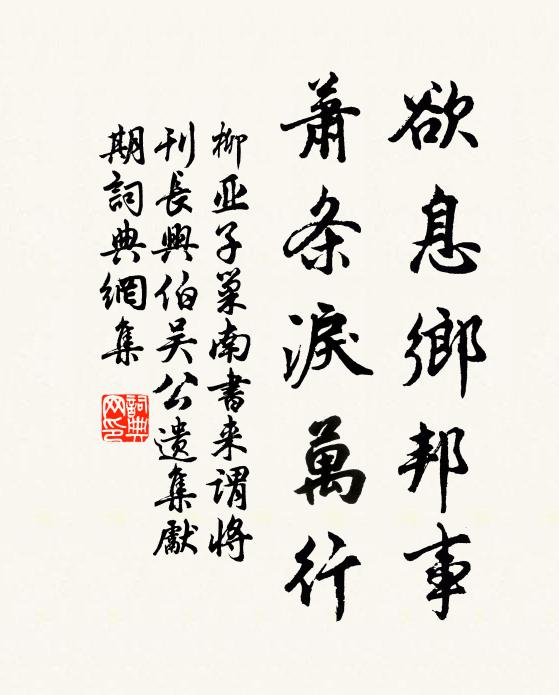 欲息鄉邦事
蕭条淚萬行
柳亚子巢南書来谓将
刊長興伯吴公遗集獻
期詞典網集
詞典网印